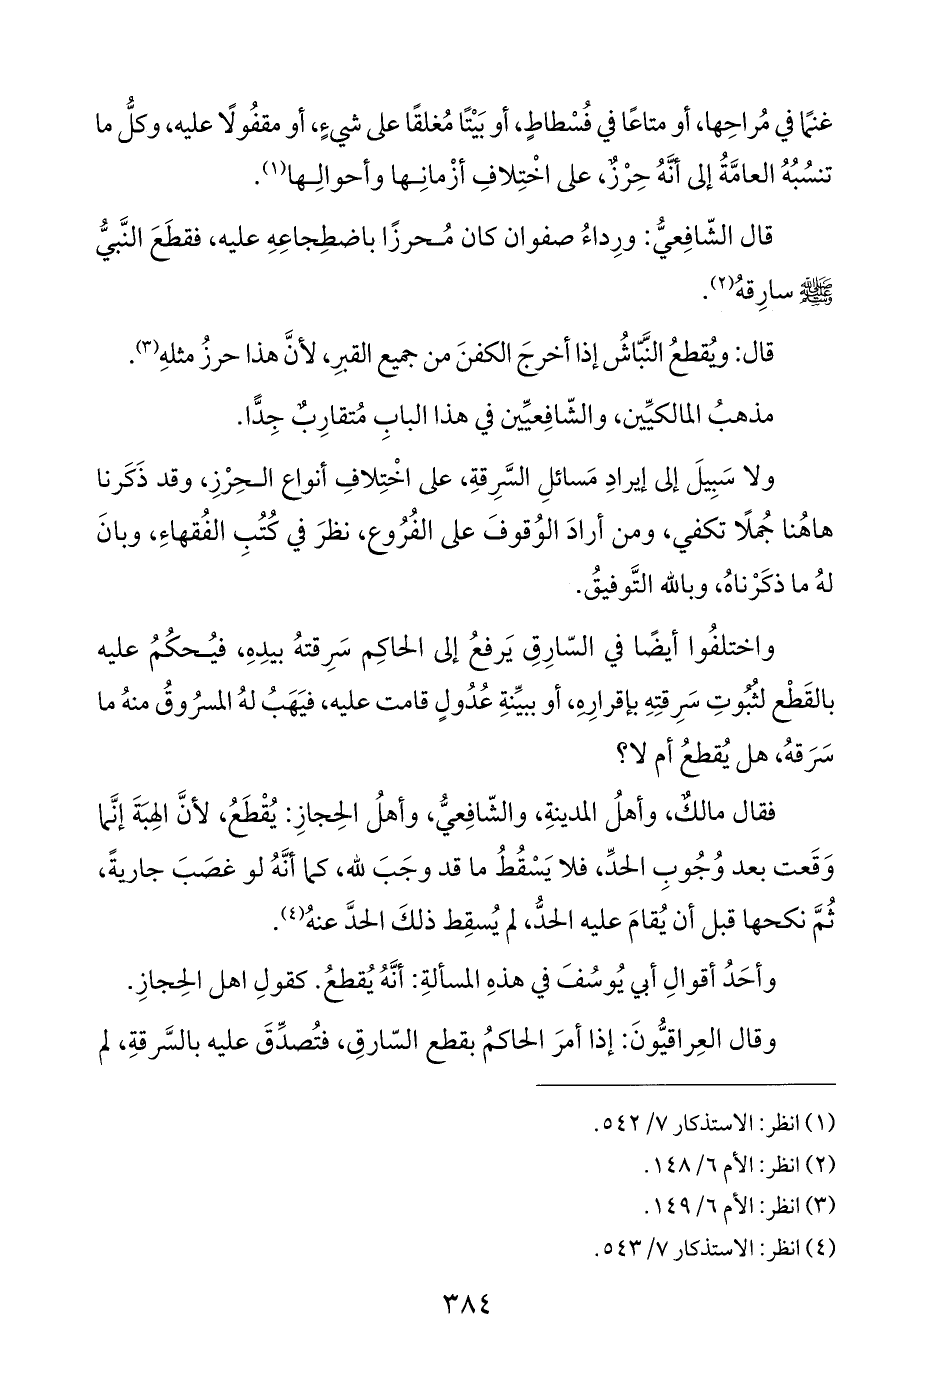 غنمًا في مُراحِها، أو متاعًا في فُسْطاطٍ، أو بَيْتًا مُغلقًا على شيءٍ، أو مقفُولًا عليه، وكلُّ ما
تنسُبُهُ العامَّةُ إلى أنَّهُ حِرْزٌ، على اخْتِلافِ أزْمانِـها وأحوالِـها(١).
قال الشّافِعيُّ: ورِداءُ صفوان كان مُـحرزًا باضطِجاعِهِ عليه، فقطَعَ النَّبيُّ
ﷺ سارِقهُ(٢).
قال: ويُقطعُ النَّبّاشُ إذا أخرجَ الكفنَ من جميع القبرِ، لأنَّ هذا حرزُ مثلهِ(٣).
مذهبُ المالكيِّين، والشّافِعيِّين في هذا البابِ مُتقارِبٌ جِدًّا.
ولا سَبِيلَ إلى إيرادِ مَسائلِ السَّرِقةِ، على اخْتِلافِ أنواع الـحِرْزِ، وقد ذَكَرنا
هاهُنا جُملًا تكفي، ومن أرادَ الوُقوفَ على الفُرُوع، نظرَ في كُتُبِ الفُقهاءِ، وبانَ
لهُ ما ذكَرْناهُ، وبالله التَّوفيقُ.
واختلفُوا أيضًا في السّارِقِ يَرفعُ إلى الحاكِم سَرِقتهُ بيدِهِ، فيُـحكُمُ عليه
بالقَطْع لثُبُوتِ سَرِقتِهِ بإقرارِهِ، أو ببيِّنةِ عُدُولٍ قامت عليه، فيَهَبُ لهُ المسرُوقُ منهُ ما
سَرَقهُ، هل يُقطعُ أم لا؟
فقال مالكٌ، وأهلُ المدينةِ، والشّافِعيُّ، وأهلُ الحِجازِ: يُقْطَعُ، لأنَّ الهِبَةَ إنَّما
وَقَعت بعد وُجُوبِ الحدِّ، فلا يَسْقُطُ ما قد وجَبَ لله، كما أنَّهُ لو غصَبَ جاريةً،
ثُمَّ نكحها قبل أن يُقامَ عليه الحدُّ، لم يُسقِط ذلكَ الحدَّ عنهُ(٤).
وأحَدُ أقوالِ أبي يُوسُفَ في هذهِ المسألةِ: أنَّهُ يُقطعُ. كقولِ اهل الحِجازِ.
وقال العِراقيُّونَ: إذا أمرَ الحاكمُ بقطع السّارقِ، فتُصدِّقَ عليه بالسَّرقةِ، لم
(١) انظر: الاستذكار ٧/ ٥٤٢.
(٢) انظر: الأم ٦/ ١٤٨.
(٣) انظر: الأم ٦/ ١٤٩.
(٤) انظر: الاستذكار ٧/ ٥٤٣.
٣٨٤